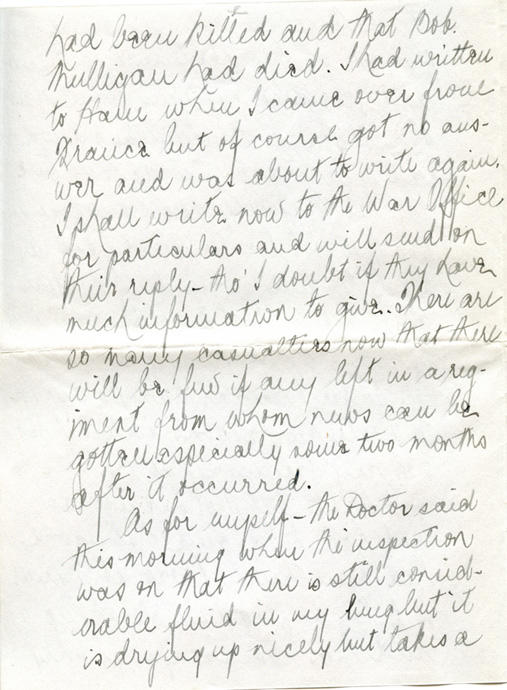 had been killed and that Bob.
Mulligan had died. I had written
to Ham when I came over from
France but of course got no ans-
wer and was about to write again.
I shall write now to the War Office
for particulars and will send on
their reply - tho' I doubt if they have
much information to give. There are
so many casualties now that there
will be few if any left in a reg-
iment from whom news can be
gotten especially some two months
after it occurred.
As for myself - the Doctor said
this morning when the inspection
was on that there is still consid-
erable fluid in my lung but it
is drying up nicely but takes a